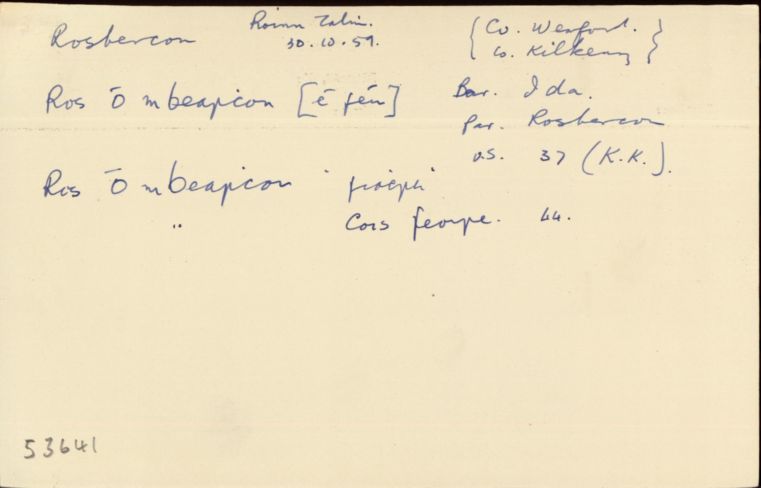 Rosbercon Roinn Talm. { Co. Wexford. }
30.10.59. { Co. Kilkenny }
Ros Ó mBearcon [é féin] Bar. Ida.
Par. Rosbercon
O.S. 37 (K.K.).
Ros Ó mBearcon
" Cois Feoire. 44.
53641